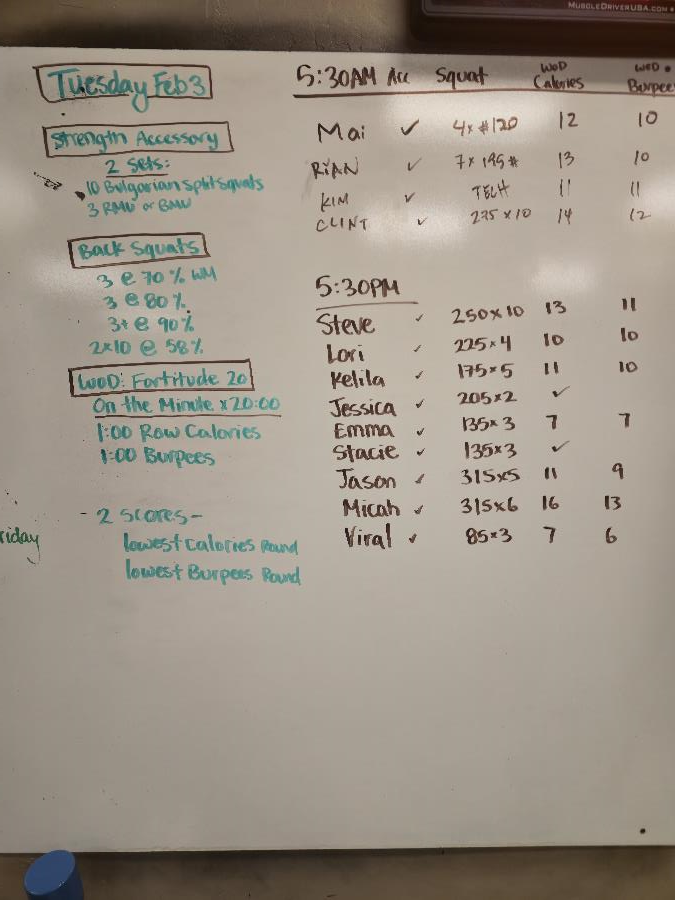 MuscleDriverUSA.com
Tuesday Feb 3
Strength Accessory
2 Sets:
10 Bulgarian Split Squats
3 RMU or BMU
Back Squats
3 @ 70% WM
3 @ 80%
3+ @ 90%
2x10 @ 58%
WOD: Fortitude 20
On the Minute x 20:00
1:00 Row Calories
1:00 Burpees
- 2 scores -
lowest Calories Round
lowest Burpees Round
riday
5:30AM Acc Squat WOD Calories WOD Burpee
Mai ✓ 4x #120 12 10
RIAN ✓ 7x 195# 13 10
KIM ✓ TECH 11 11
CLINT ✓ 275 x 10 14 12
5:30PM
Steve ✓ 250x10 13 11
Lori ✓ 225x4 10 10
Kelila ✓ 175x5 11 10
Jessica ✓ 205x2 ✓
Emma ✓ 135x3 7 7
Stacie ✓ 135x3 ✓
Jason ✓ 315x5 11 9
Micah ✓ 315x6 16 13
Viral ✓ 85x3 7 6